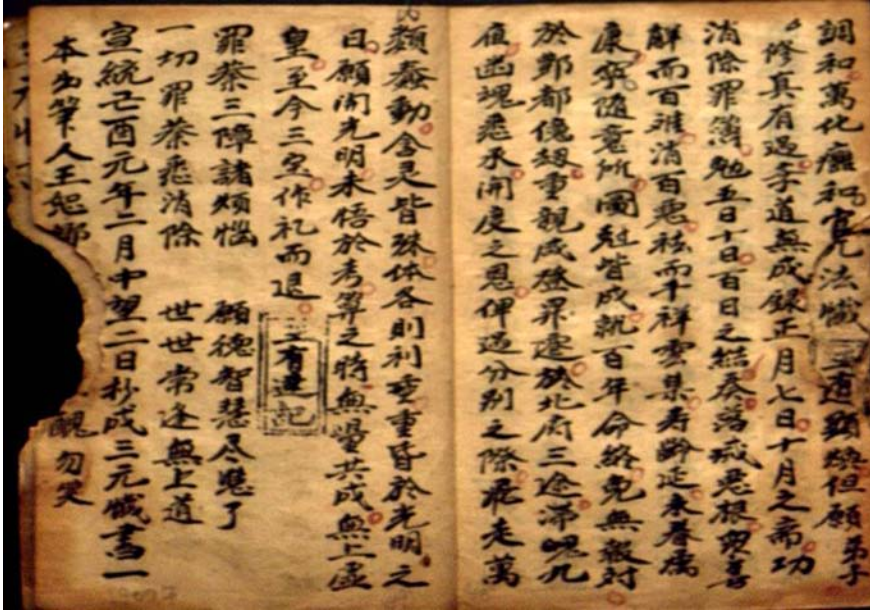 調和萬化應和官凡法懺三道顯煥但願弟子
修真有過辛道無成録正月七日十月之齋功
消除罪簿勉五日十日百日之結奏落滅惡根衆善
解而百難消百惡祛而千祥雲集寿齡延永眷属
康寧隨意所圖尅皆成就百年命終免無數対
於酆都億劫重親咸登昇遷於北府三途滯魄九
夜幽魂悉承開度之恩俾返分别之際飛走萬
類蠢動含灵皆殊体各則利重重昏於光明之
日願開光明未悟於考算之時無量共成無上虚
皇至今三宝作礼而退
王有進記
罪蔡三障諸煩惱 願德智慧尽慧了
一切罪蔡悉消除 世世常逢無上道
宣統己酉元年二月中望二日抄成三元懺書一
本出筆人王 醜勿笑